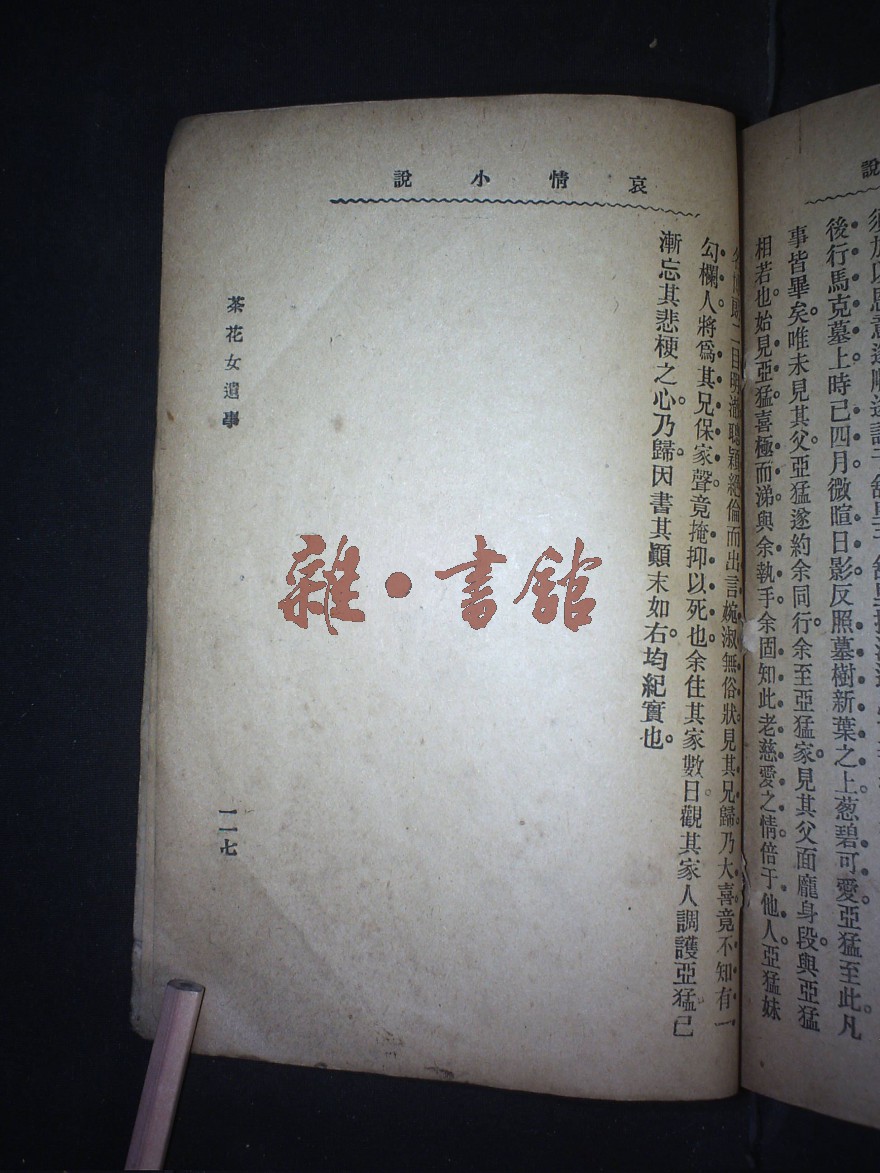 說
後行馬克墓上時已四月微暄日影反照墓樹新葉之上葱碧可愛亞猛至此凡
事皆畢矣唯未見其父亞猛遂約余同行余至亞猛家見其父面龐身段與亞猛
相若也始見亞猛喜極而涕與余執手余固知此老慈愛之情倍于他人亞猛妹
二目明澈聰穎絕倫而出言婉淑無俗狀見其兄歸乃大喜竟不知有一
勾欄人將爲其兄保家聲竟掩抑以死也余住其家數日觀其家人調護亞猛已
漸忘其悲梗之心乃歸因書其顚末如右均紀實也
哀情小說
茶花女遺事
一一七
雜·書館